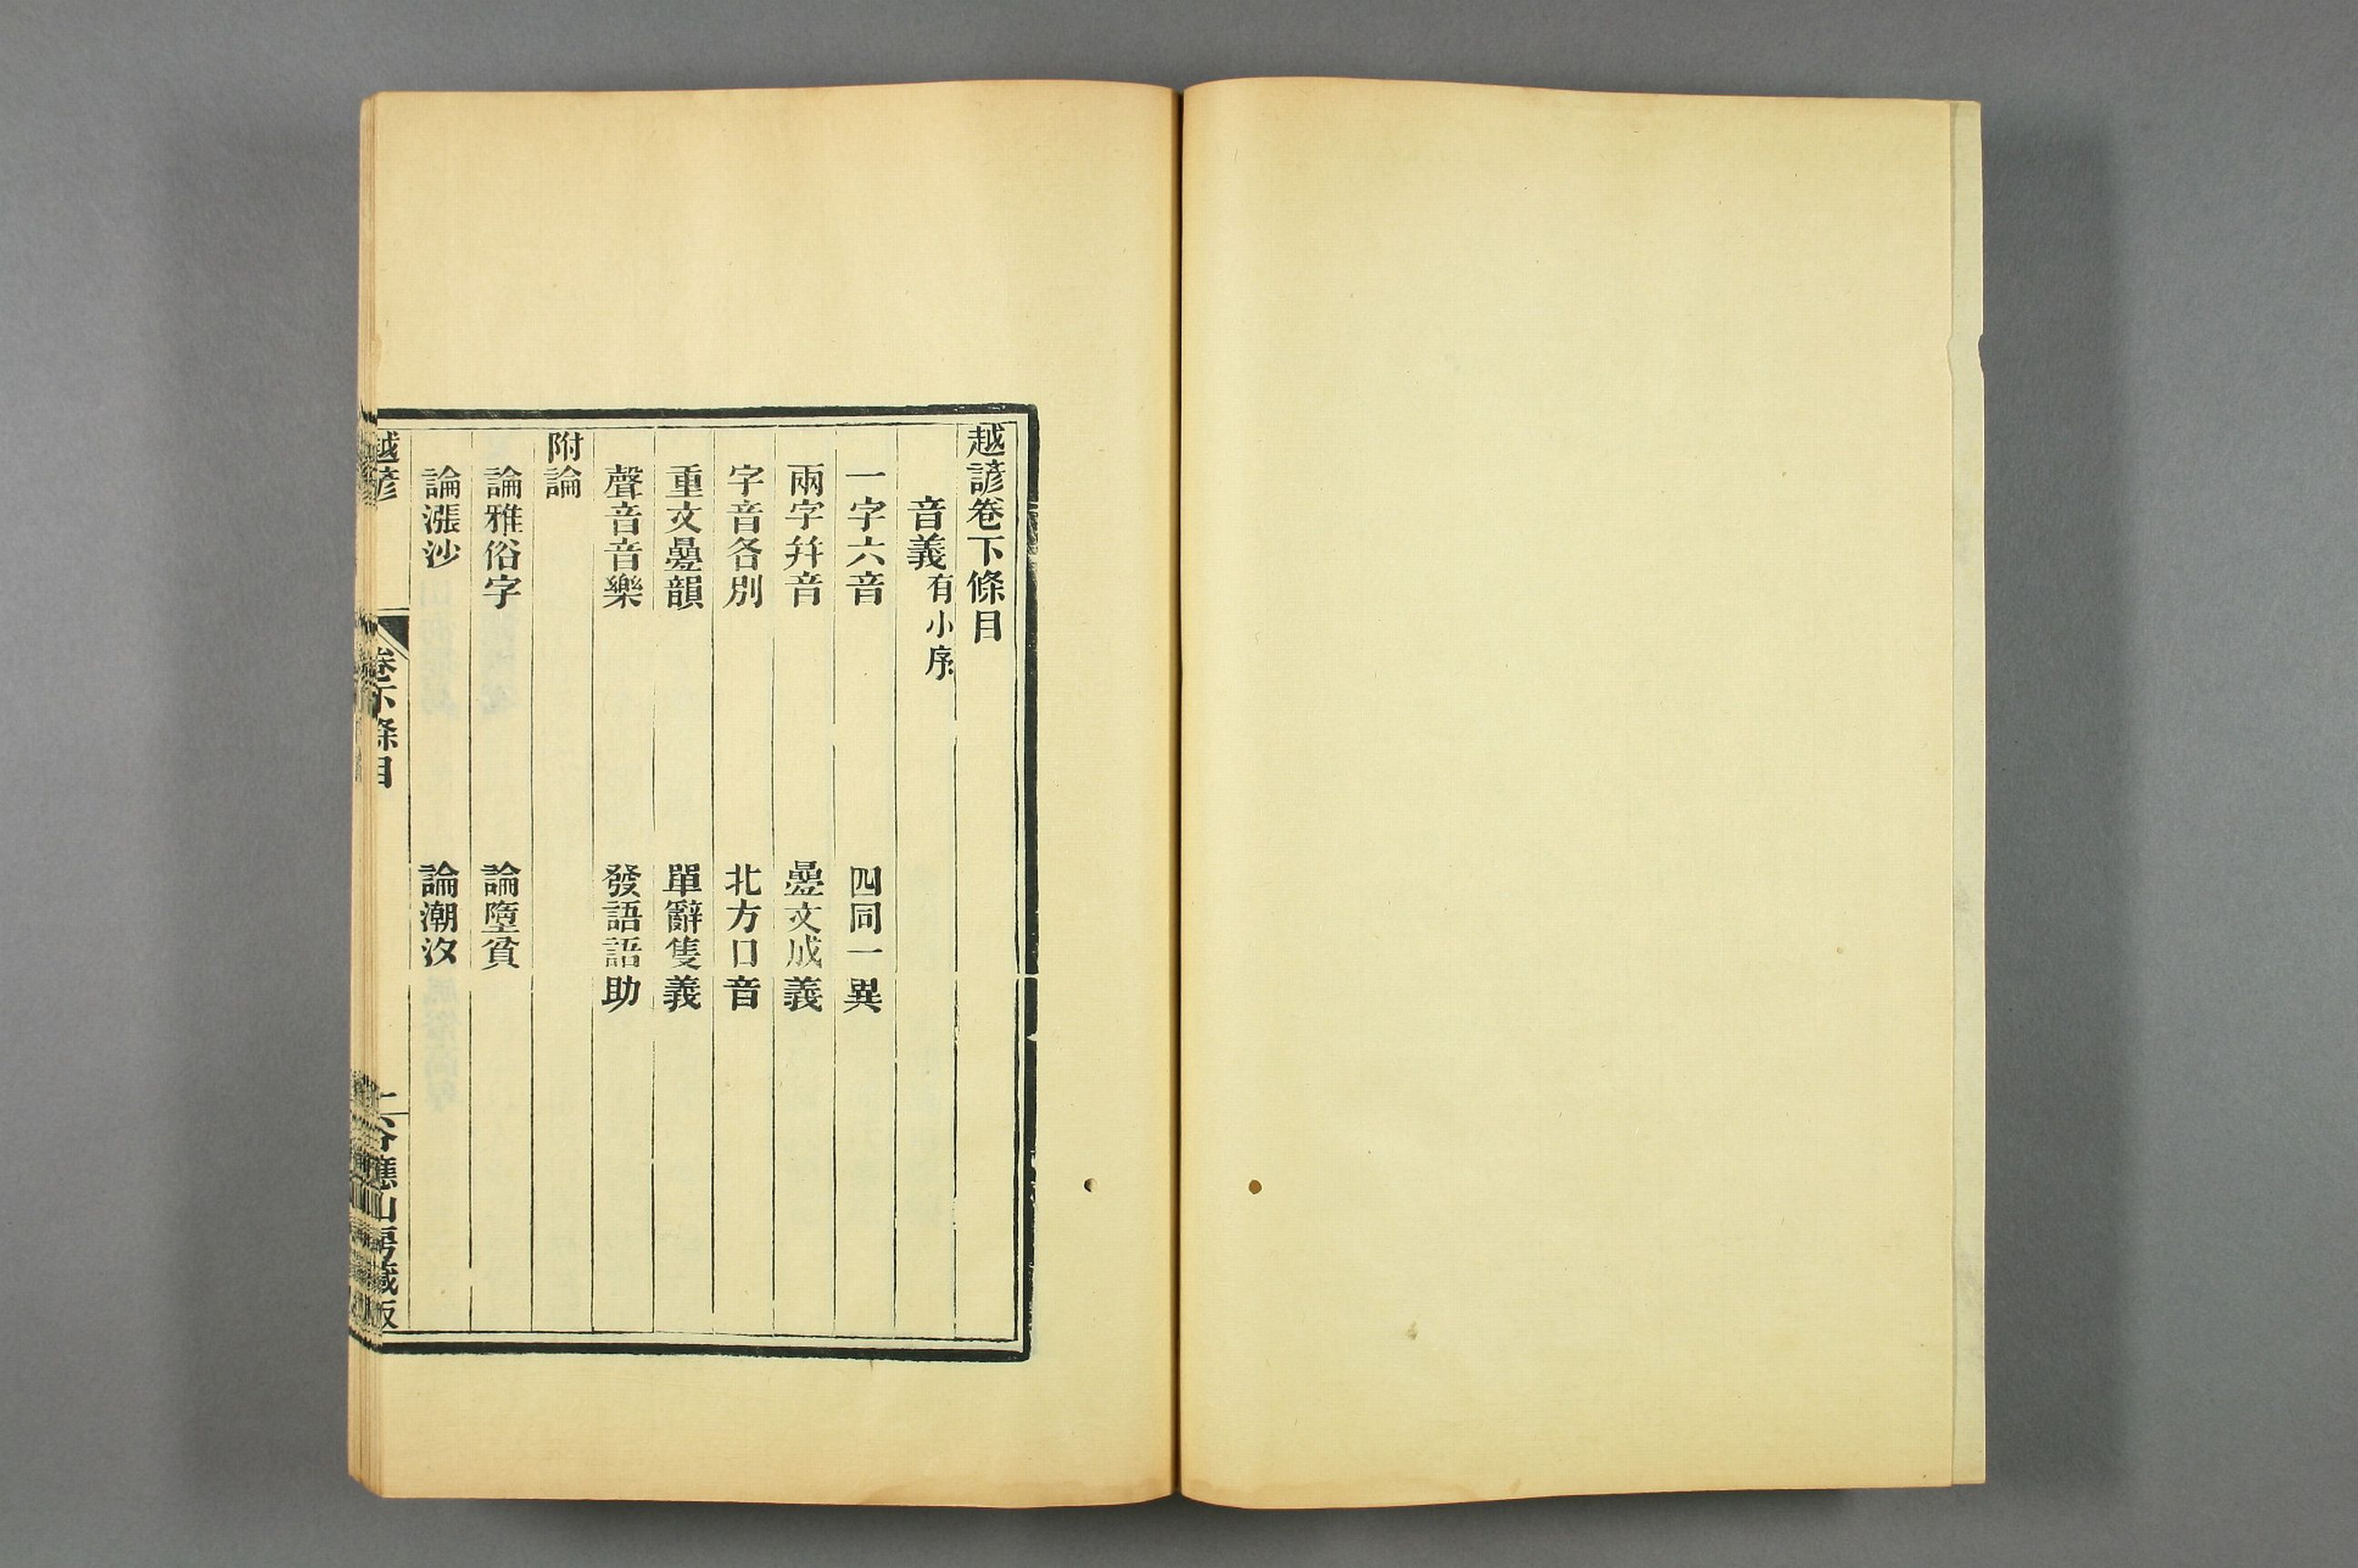 越諺卷下條目
音義有小序
一字六音　四同一異
兩字幷音　疊文成義
字音各別　北方口音
重文疊韻　單辭隻義
聲音音樂　發語語助
附論
論雅俗字　論墮貧
論漲沙　論潮汐
越諺
卷下條目
谷應山房藏板